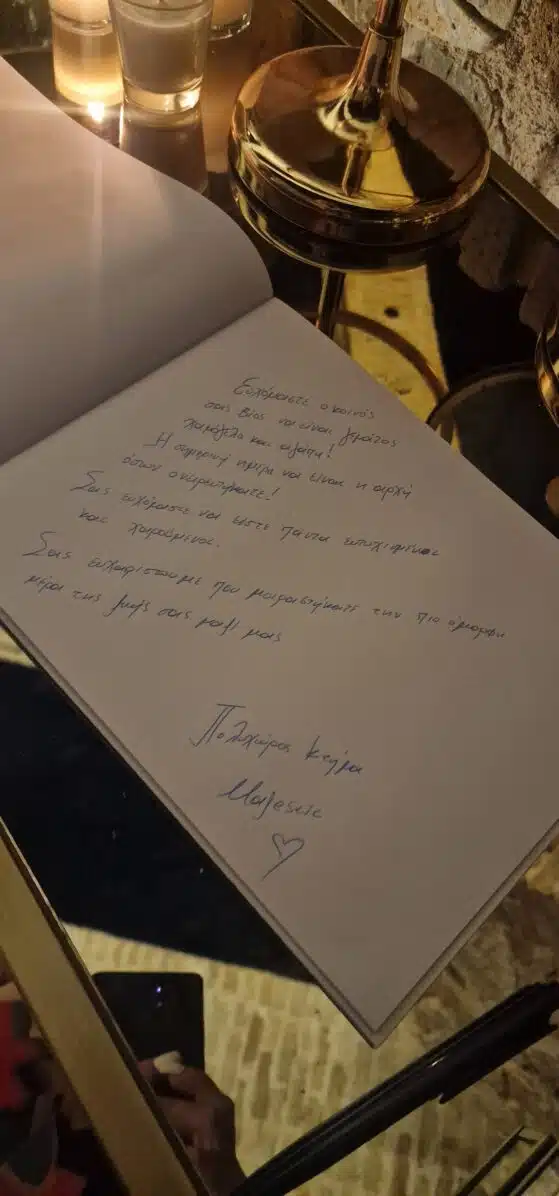 Ευχόμαστε ο κοινός
σας βίος να είναι γεμάτος
χαμόγελα και αγάπη!
Η σημερινή ημέρα να είναι η αρχή
όσων ονειρευτήκατε!
Σας ευχόμαστε να είστε πάντα ευτυχισμένοι
και χαρούμενοι.
Σας ευχαριστούμε που μοιραστήκατε την πιο όμορφη
μέρα της ζωής σας μαζί μας
Πολυχώρος Κτήμα
Majestic